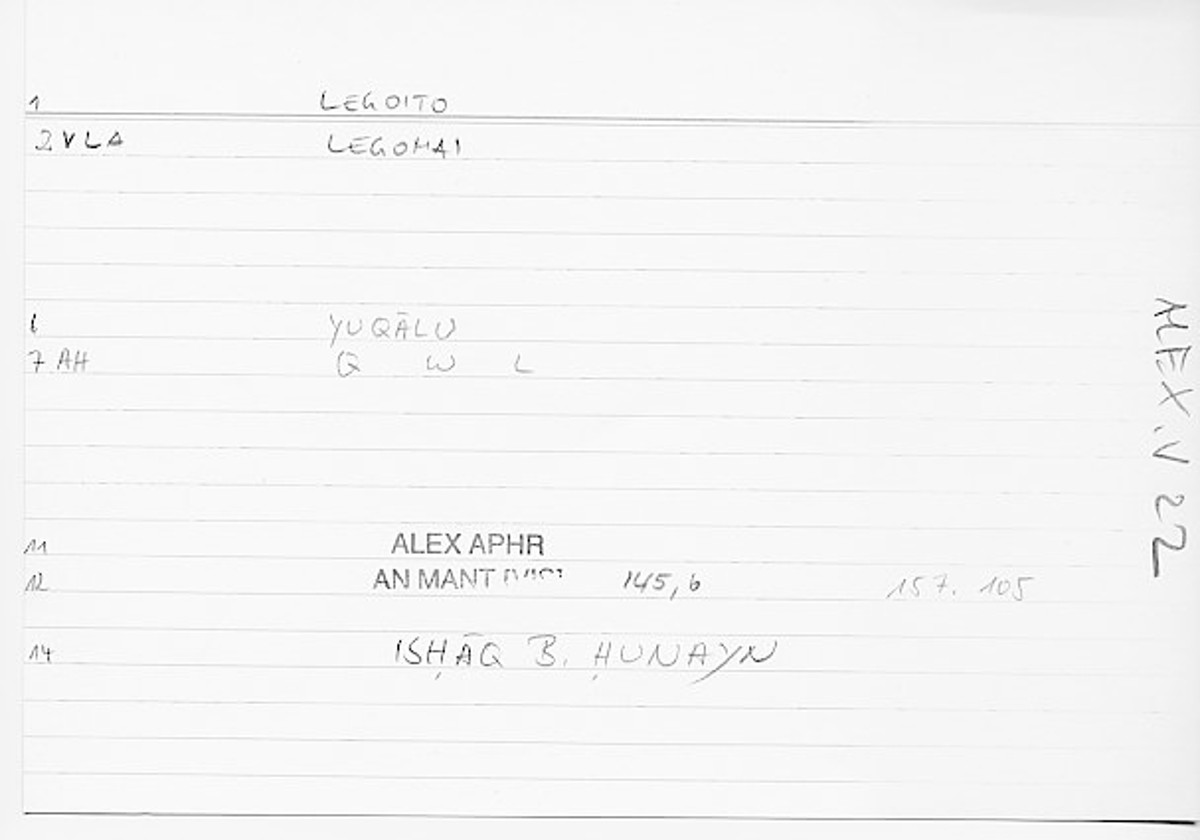 1 LEGOITO
2 VLA LEGOMAI
6 YUQĀLU
7 AH Q W L
11 ALEX APHR
12 AN MANT 145,6 157. 105
14 ISḤĀQ B. ḤUNAYN
ALEX.V 22